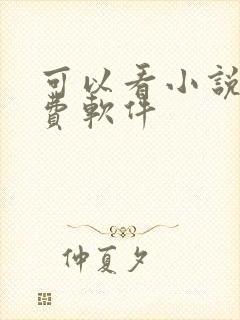 可以看小說
費軟件
仲夏夕